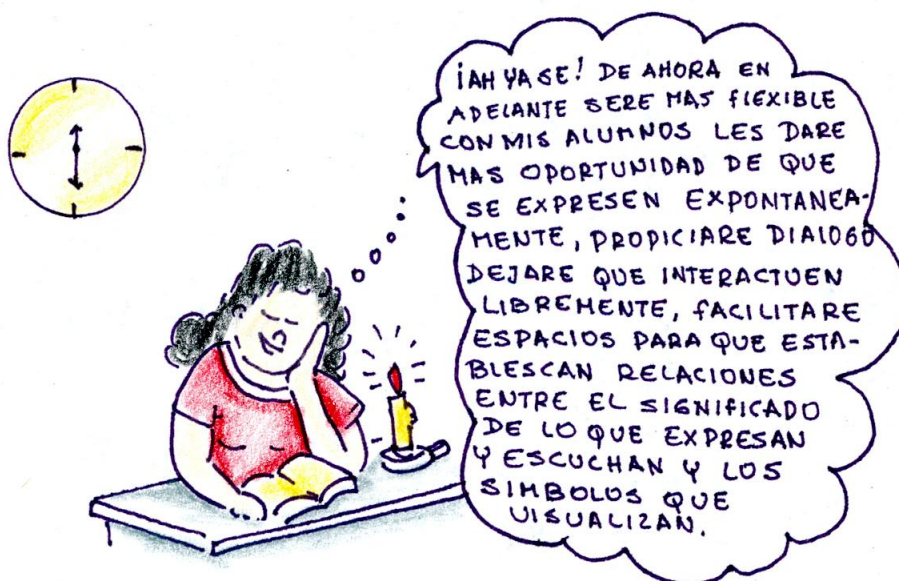 ¡AH YA SE! DE AHORA EN
ADELANTE SERE MAS FLEXIBLE
CON MIS ALUMNOS LES DARE
MAS OPORTUNIDAD DE QUE
SE EXPRESEN EXPONTANEA-
MENTE, PROPICIARE DIALOGO
DEJARE QUE INTERACTUEN
LIBREMENTE, FACILITARE
ESPACIOS PARA QUE ESTA-
BLESCAN RELACIONES
ENTRE EL SIGNIFICADO
DE LO QUE EXPRESAN
Y ESCUCHAN Y LOS
SIMBOLOS QUE
VISUALIZAN.